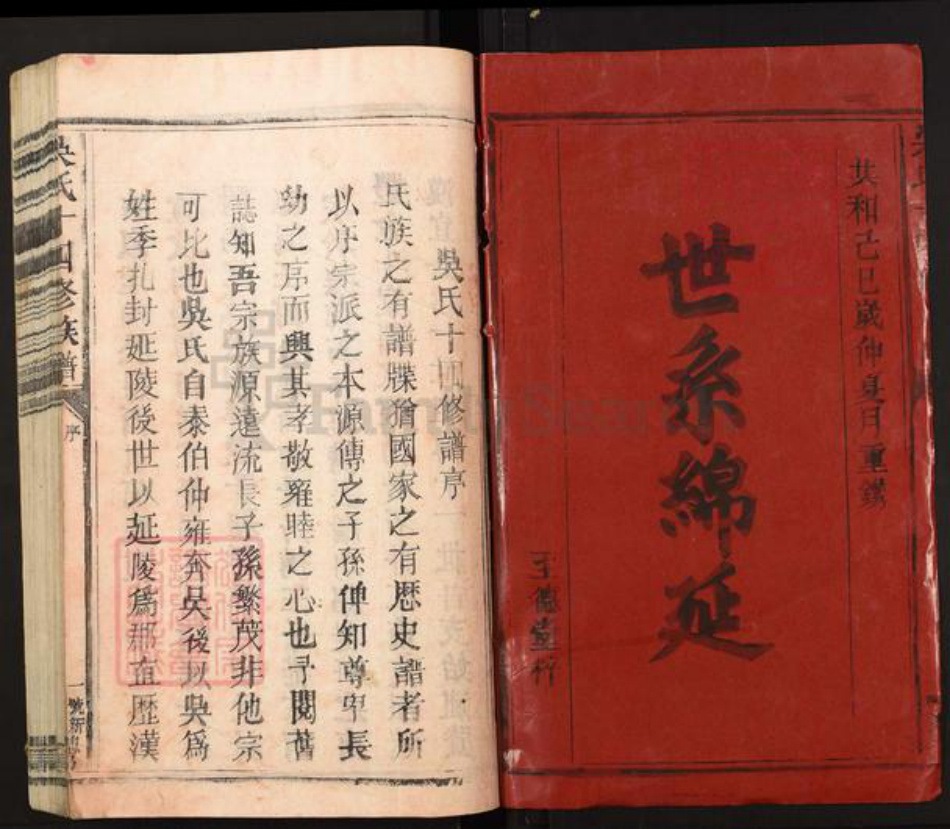 共和己巳歲仲夏月重鐫
世系綿延
至德堂梓
吳氏十四修譜序
氏族之有譜牒猶國家之有歷史譜者所
以序宗派之本源傳之子孫俾知尊卑長
幼之序而興其孝敬雍睦之心也予閱舊
誌知吾宗族源遠流長子孫繁茂非他宗
可比也吳氏自泰伯仲雍奔吳後以吳為
姓季扎封延陵後世以延陵爲郡直歷漢
吳氏十四修族譜
序
一